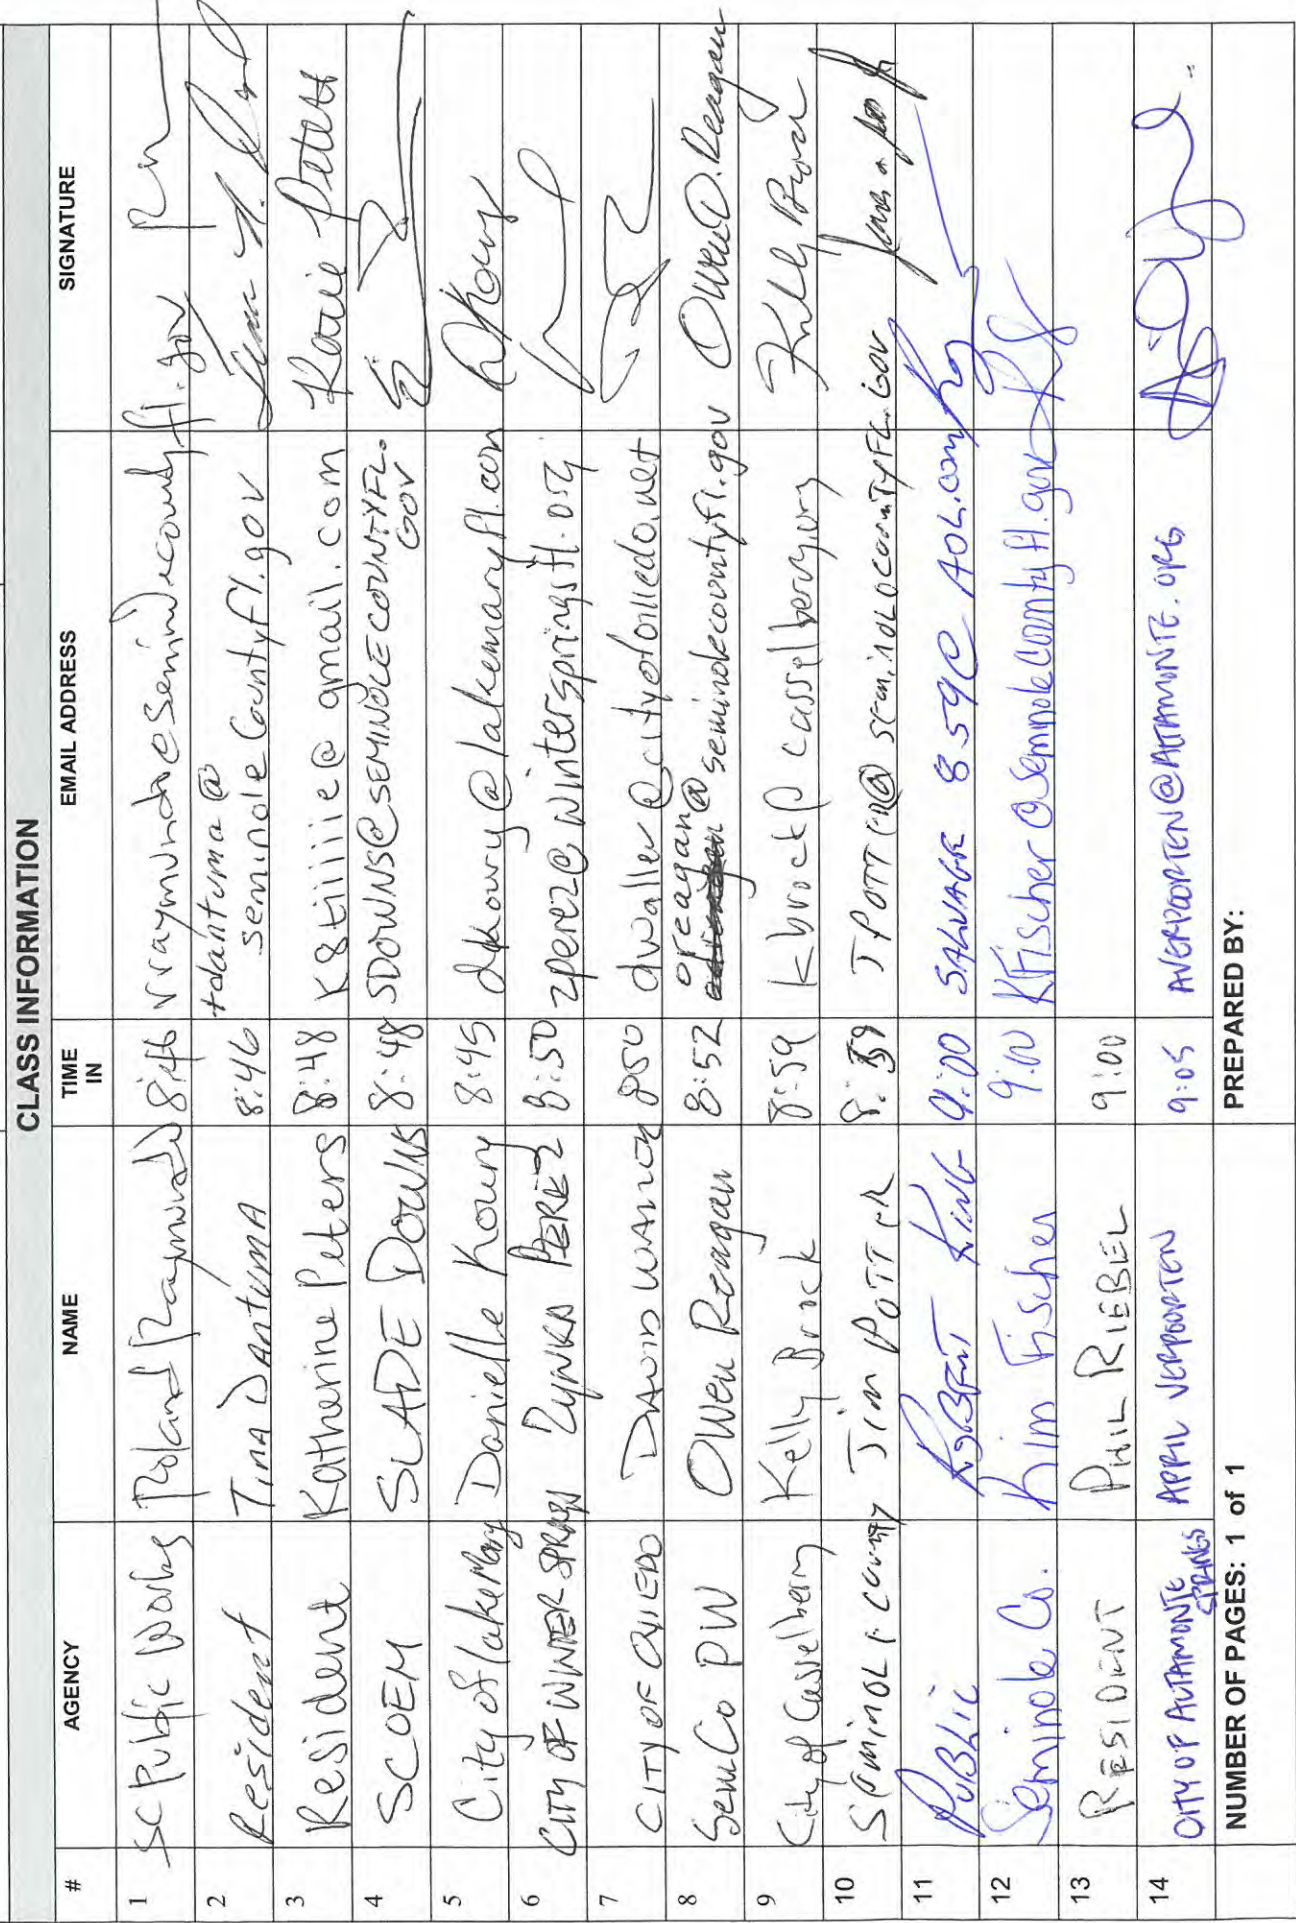 CLASS INFORMATION
# AGENCY NAME TIME IN EMAIL ADDRESS SIGNATURE
1 SC Public Works Roland Raymundo 8:46 rraymundo@seminolecountyfl.gov
2 Resident Tina Dantuma 8:46 tdantuma@
seminolecountyfl.gov
3 Resident Katherine Peters 8:48 K8tiiiie@gmail.com Katie Peters
4 SCOEM SLADE DOWNS 8:48 SDOWNS@SEMINOLECOUNTYFL.
GOV
5 City of Lake Mary Danielle Koury 8:45 dkoury@lakemaryfl.com DKoury
6 CITY OF WINTER SPRINGS ZYNKA PEREZ 8:50 zperez@winterspringsfl.org
7 CITY OF OVIEDO DAVID WALLER 850 dwaller@cityofoviedo.net
8 SemCo PW Owen Reagan 8:52 oreagan@
seminolecountyfl.gov Owen D. Reagan
9 City of Casselberry Kelly Brock 8:59 kbrock@casselberry.org Kelly Brock
10 SEMINOLE COUNTY JIM POTTER 8:59 JPOTTER@SEMINOLECOUNTYFL.GOV
11 PUBLIC ROBERT KING 9:00 SALVAGE859@AOL.COM
12 Seminole Co. Kim Fischer 9:00 KFischer@SeminoleCountyfl.gov
13 RESIDENT PHIL RIEBEL 9:00
14 CITY OF ALTAMONTE
SPRINGS APRIL VERPOORTEN 9:05 AVERPOORTEN@ALTAMONTE.ORG
NUMBER OF PAGES: 1 of 1 PREPARED BY: